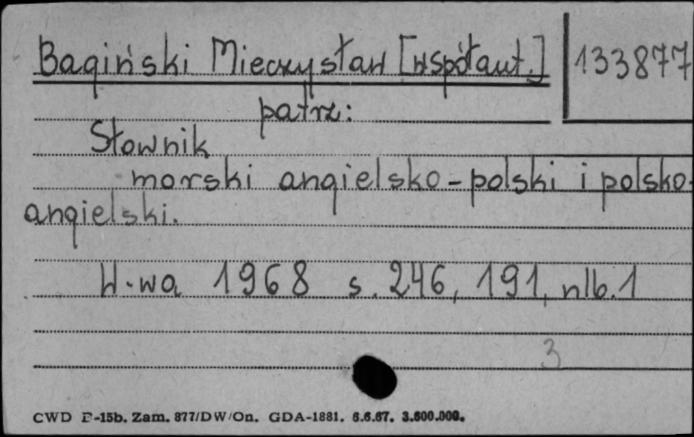 Bagiński Mieczysław [współaut.] 133877
patrz:
Słownik
morski angielsko-polski i polsko-
angielski.
W-wa 1968 s. 246, 191, nlb. 1
3
CWD P-15b. Zam. 877/DW/On. GDA-1881. 6.6.67. 3.600.000.